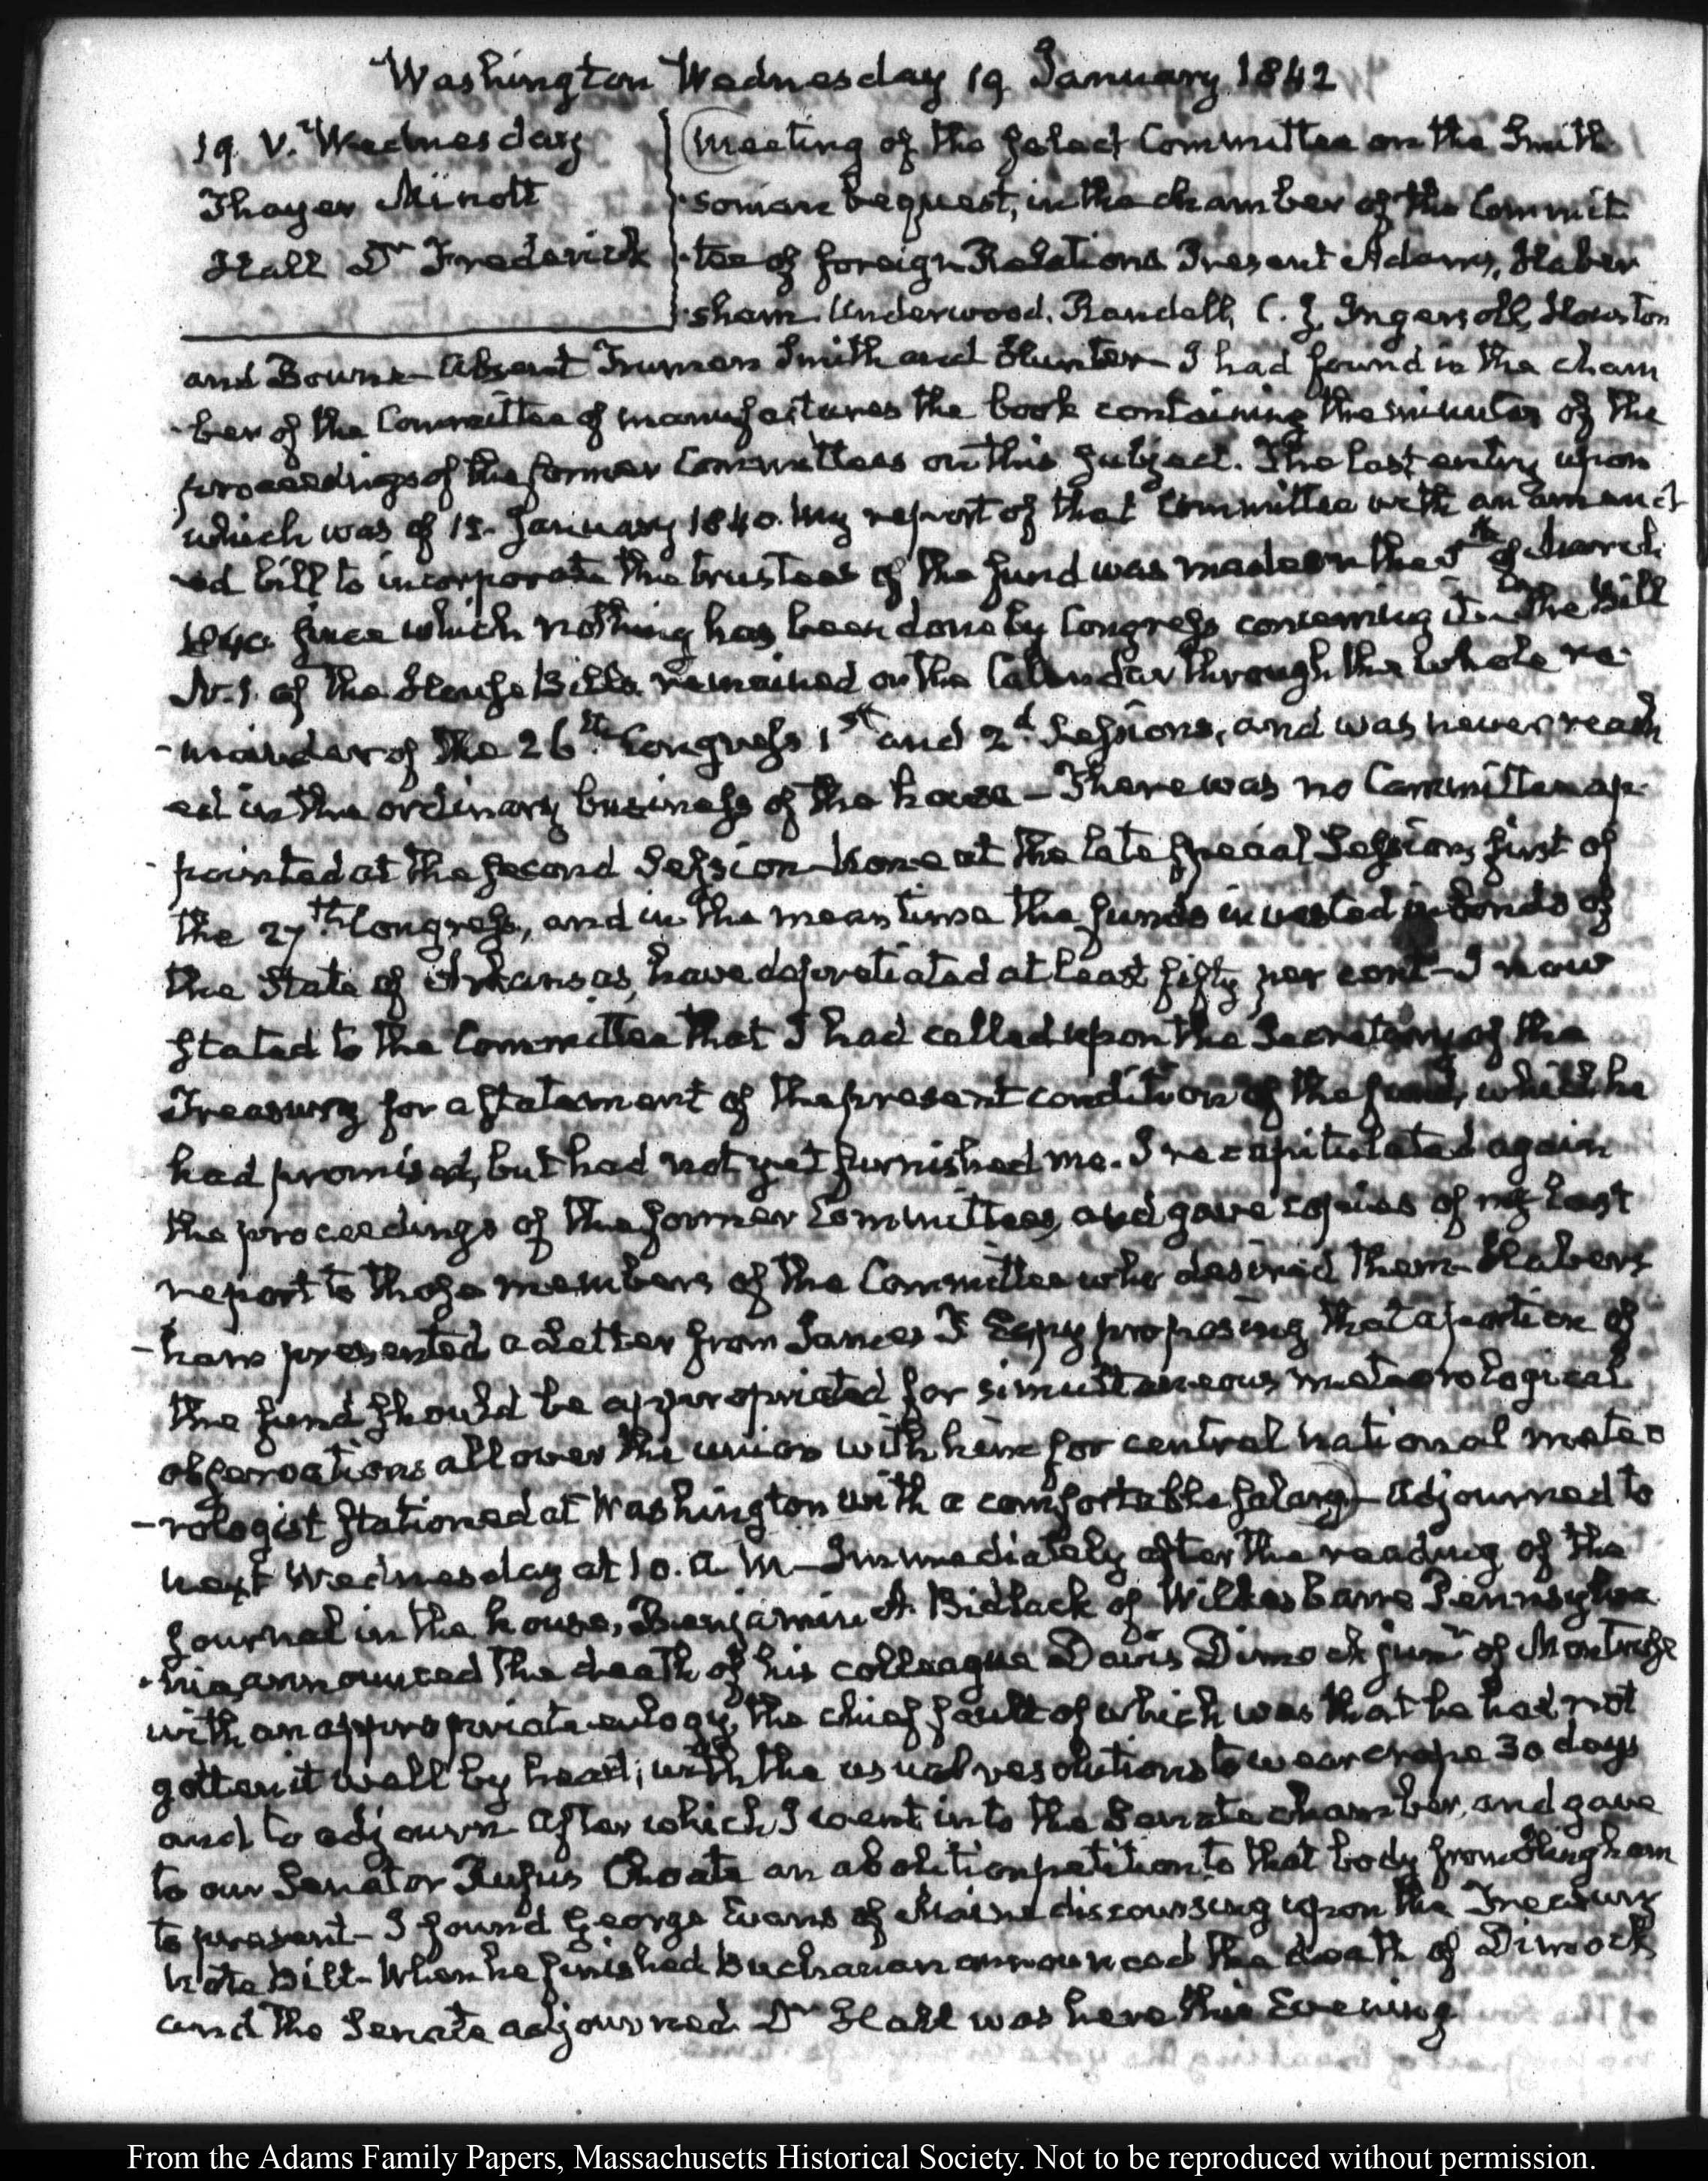 Washington Wednesday 19 January 1842
19. V. Wednesday
Thayer Minott
Hall Dr Frederick
Meeting of the Select Committee on the Smith
sonian bequest, in the chamber of the Commit
tee of foreign Relations Present Adams, Haber
sham. Underwood, Randall, C. J. Ingersoll, Houston
and Bowne - Absent Truman Smith and Hunter - I had found in the cham
-ber of the Committee of manufactures the book containing the minutes of the
proceedings of the former Committees on this subject. The last entry upon
which was of 15. January 1840. My report of that Committee with an amend
-ed bill to incorporate the trustees of the fund was made on the 5th of March
1840. since which nothing has been done by Congress concerning it - The Bill
N. 1. of the House Bills remained on the Calendar through the whole re
-mainder of the 26th Congress 1st and 2d Sessions, and was never reach
ed in the ordinary business of the house - There was no Committee ap
-pointed at the second Session - None at the late special Session, first of
the 27th Congress, and in the mean time the funds invested in bonds of
the State of Arkansas, have depretiated at least fifty per cent - I now
stated to the Committee that I had called upon the Secretary of the
Treasury for a statement of the present condition of the fund, which he
had promised, but had not yet furnished me. I recapitulated again
the proceedings of the former Committees, and gave copies of my last
report to those members of the Committee who desired them - Habers
-ham presented a Letter from James P Espy proposing that a portion of
the fund should be appropriated for simultaneous meteorological
observations all over the union with him for central national meteo
-rologist stationed at Washington with a comfortable salary - Adjourned to
next Wednesday at 10. A M - Immediately after the reading of the
Journal in the house, Benjamin A. Bidlack of Wilkes barre Pennsylva
-nia, announced the death of his colleague Davis Dimock junr of Montrose
with an appropriate eulogy, the chief fault of which was that he had not
gotten it well by heart; with the usual resolutions to wear crape 30 days
and to adjourn - After which I went into the Senate chamber, and gave
to our Senator Rufus Choate an abolition petition to that body from Hingham
to present - I found George Evans of Maine discoursing upon the Treasury
Note Bill - When he finished Buchanan announced the death of Dimock
and the Senate adjourned. Dr Hall was here this Evening
From the Adams Family Papers, Massachusetts Historical Society. Not to be reproduced without permission.